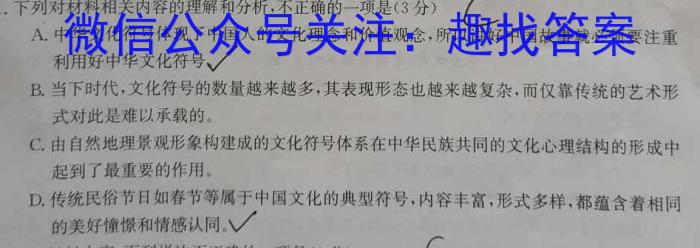 1. 下列对材料相关内容的理解和分析,不正确的一项是(3分)
微信公众号关注:趣找答案
A. 中华文化符号体现了中国人的文化理念和价值观念,所以 要注重
利用好中华文化符号。
B. 当下时代,文化符号的数量越来越多,其表现形态也越来越复杂,而仅靠传统的艺术形
式对此是难以承载的。
C. 由自然地理景观形象构建成的文化符号体系在中华民族共同的文化心理结构的形成中
起到了最重要的作用。
D. 传统民俗节日如春节等属于中国文化的典型符号,内容丰富,形式多样,都蕴含着相同
的美好憧憬和情感认同。